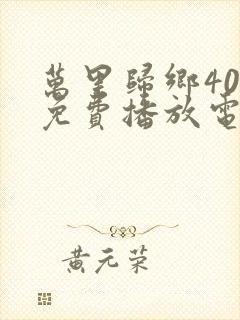 萬里歸鄉4D
免費播放電
黃元荣